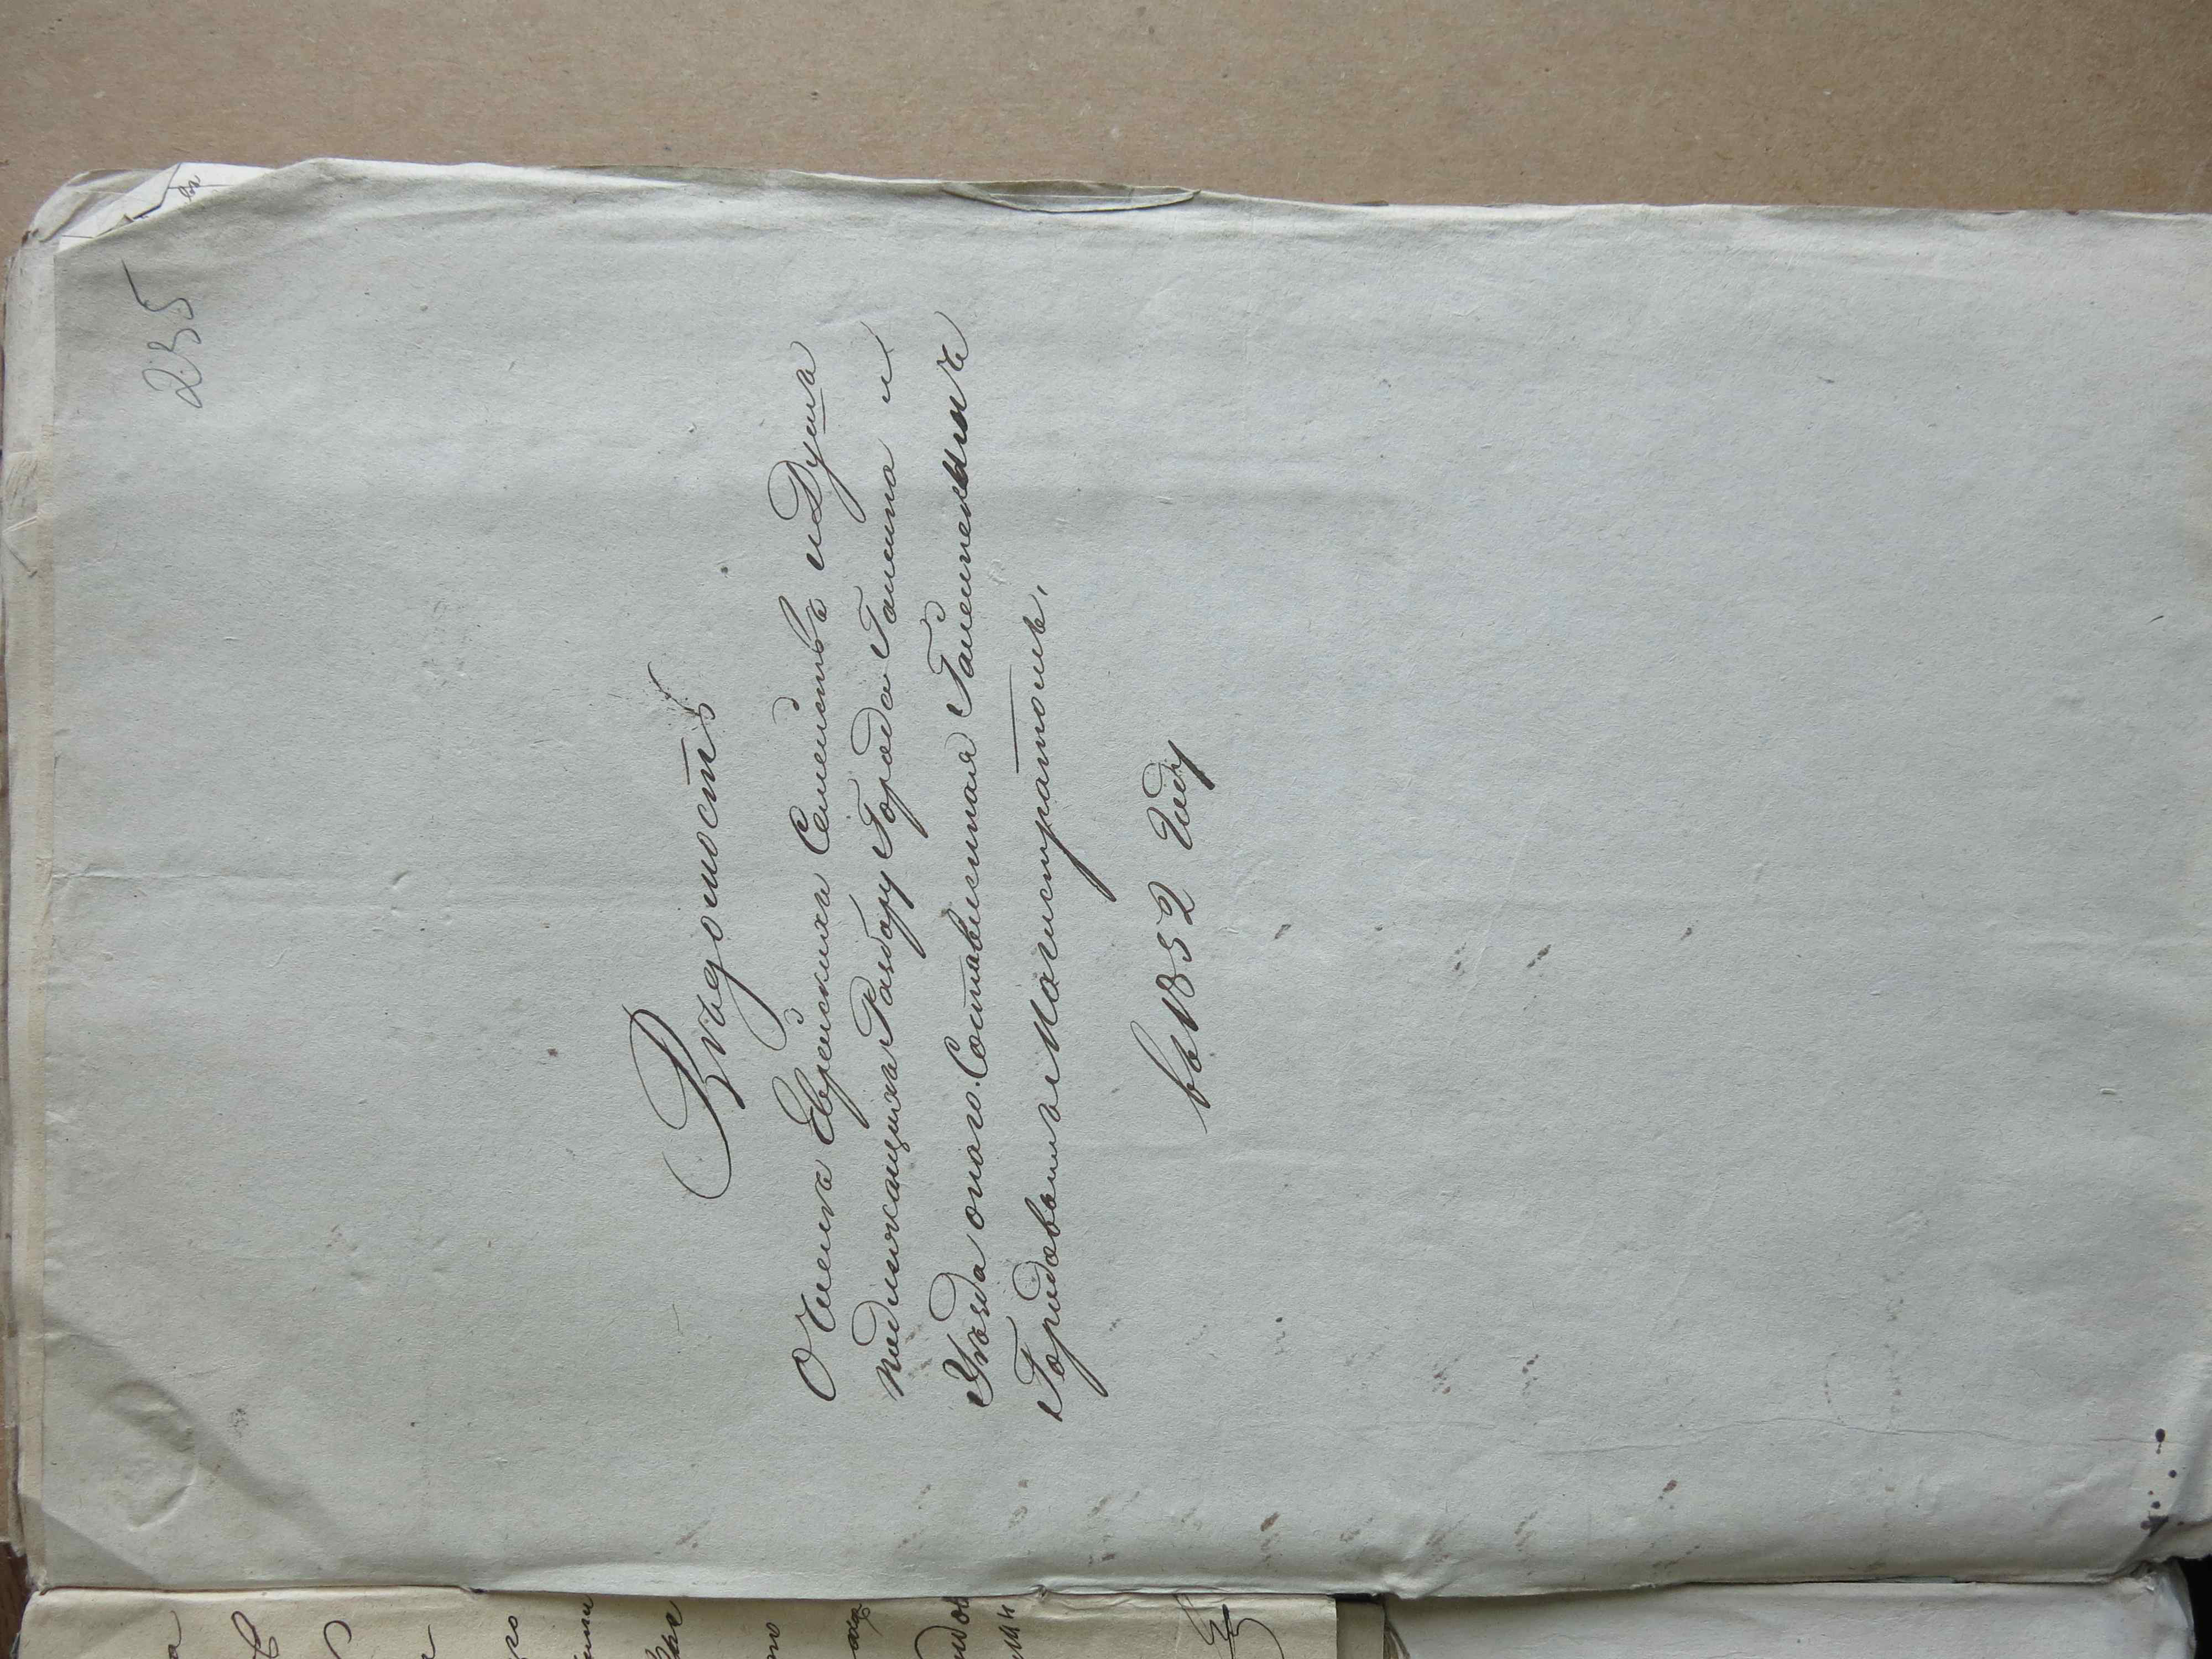 235
Вѣдомость
О Числѣ Еврейскихъ Семействъ и Душъ
подлежащихъ Разбору Города Гайсина и
Уѣзда оного. Составленная Гайсинскимъ
Городовымъ Магистратомъ.
въ 1852 Году